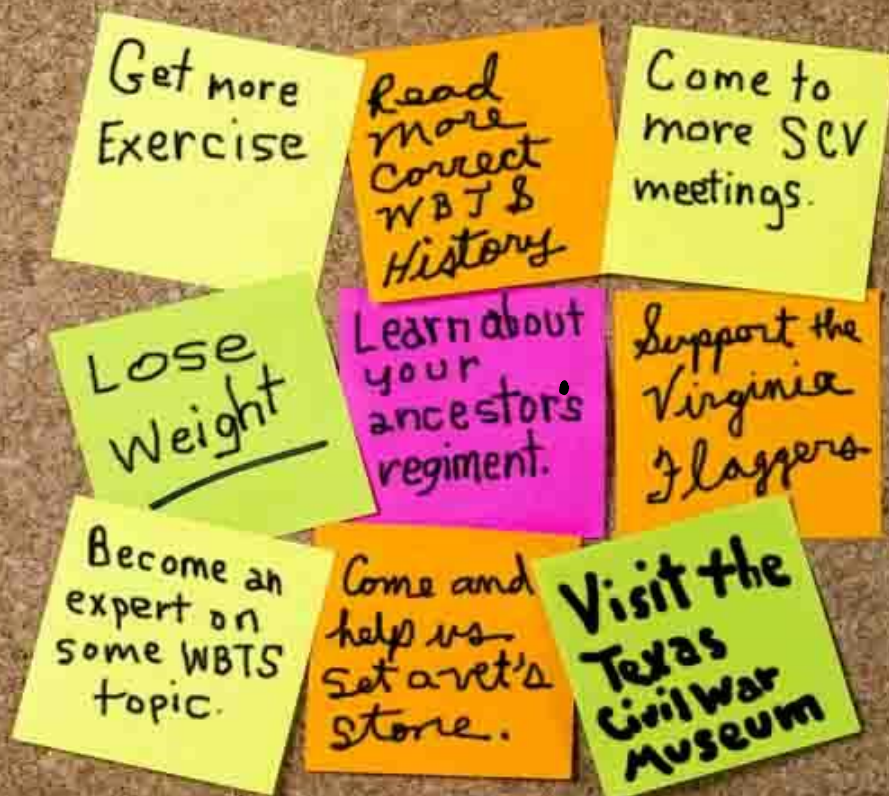 Get more
Exercise
Read
More
Correct
WBTS
History
Come to
more SCV
meetings.
Lose
Weight
Learn about
your
ancestor's
regiment.
Support the
Virginia
Flaggers
Become an
expert on
some WBTS
topic.
Come and
help us
Set a vet's
stone.
Visit the
Texas
Civil War
Museum